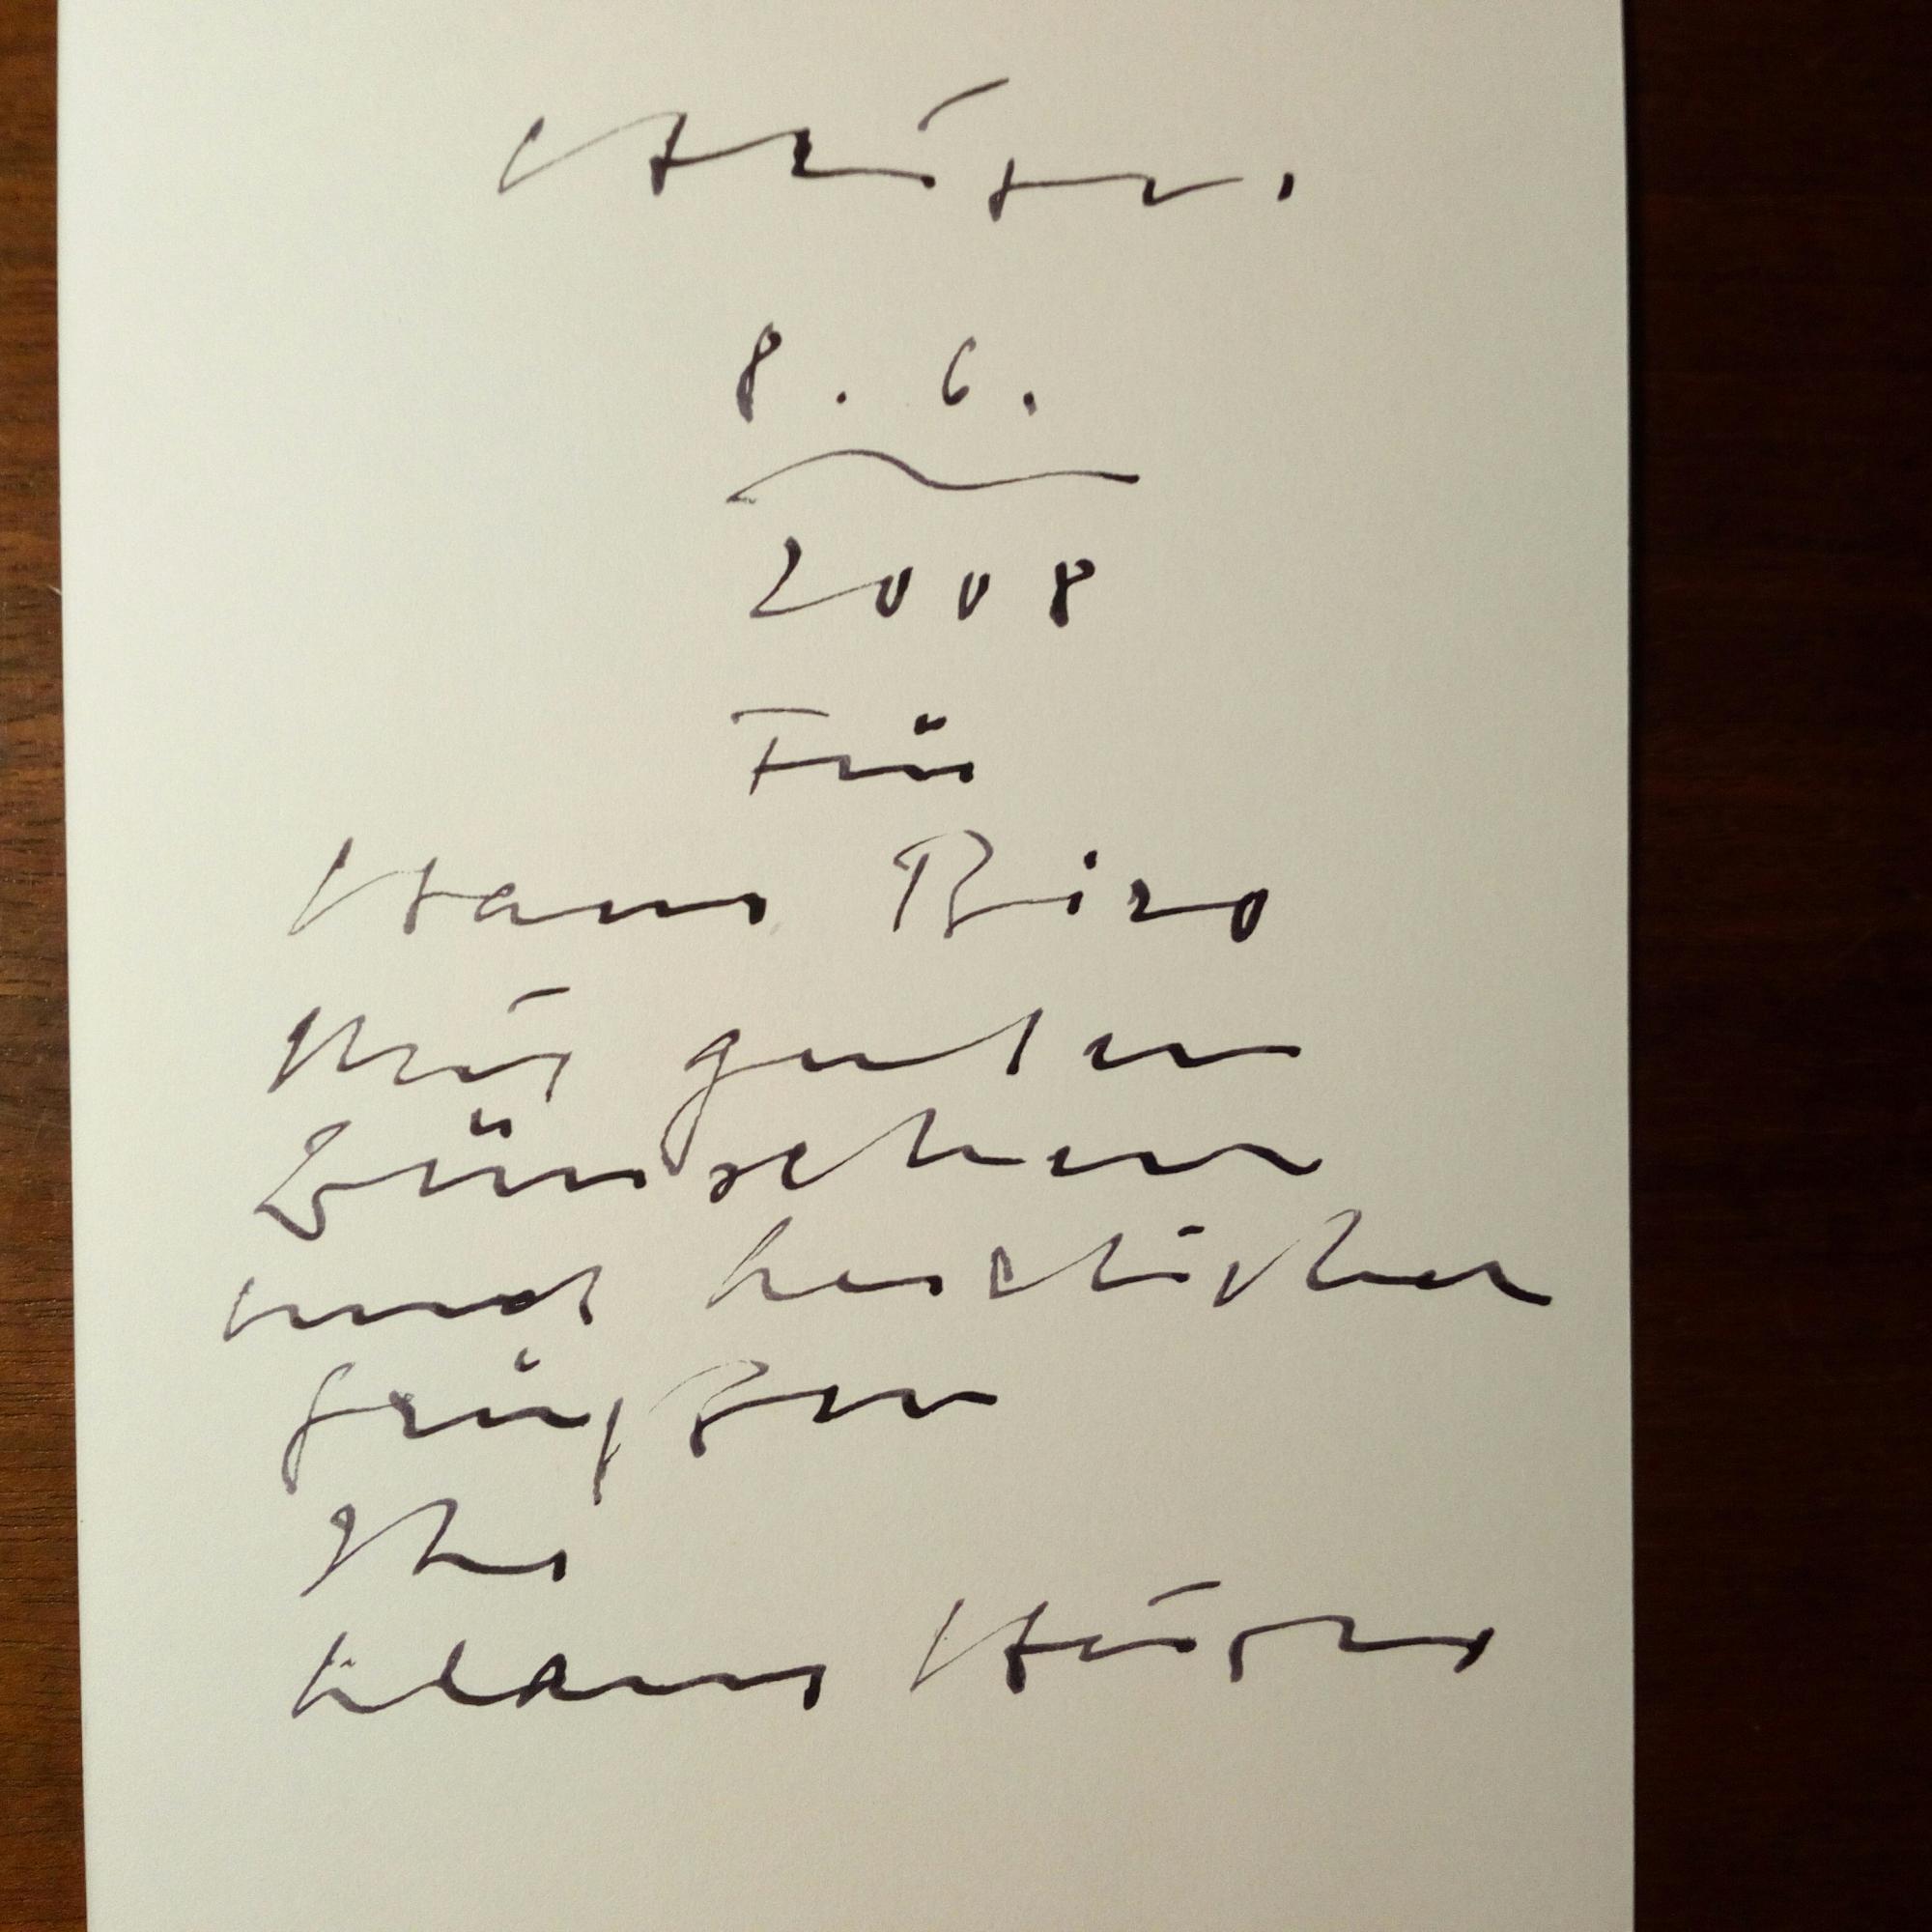 8. 6.
2008
Für
Hans Biro
Mit guten
Wünschen
und herzlichen
Grüßen
Ihr
Klaus